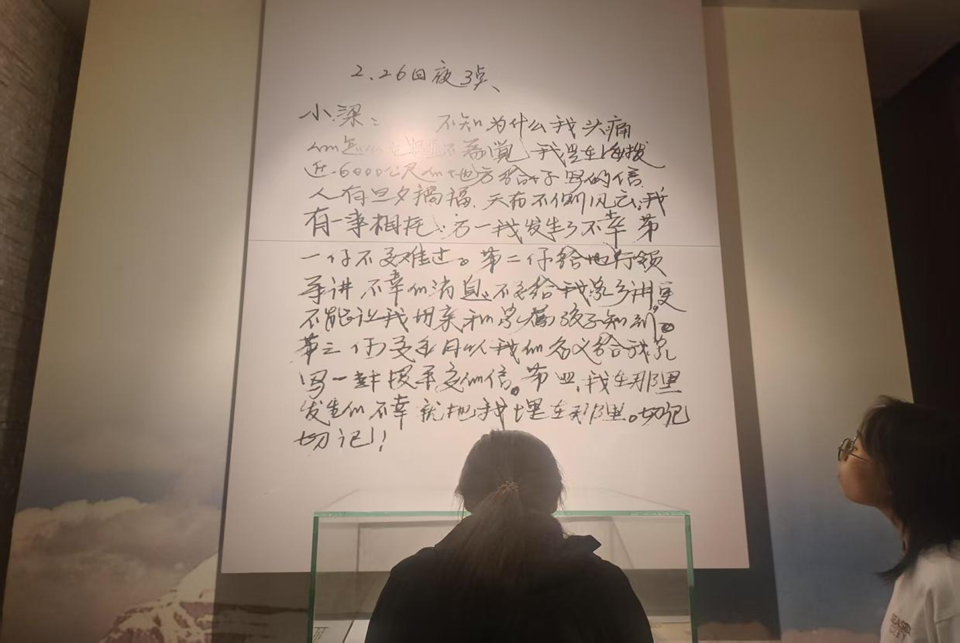 2.26日夜3点
小梁: 不知为什么我头痛
也睡不着觉 我是在海拔
近6000公尺的地方给你写的信
人有旦夕祸福、天有不测风云,我
有一事相托:万一我发生了不幸 第
一你不要难过。第二你给地行领
导讲 不幸的消息,不要给我家乡讲更
不能让我母亲和家属孩子知道。
第三 你要每月以我的名义给我家
写一封报平安的信。第四、我在那里
发生的不幸就把我埋在那里。切记
切记!